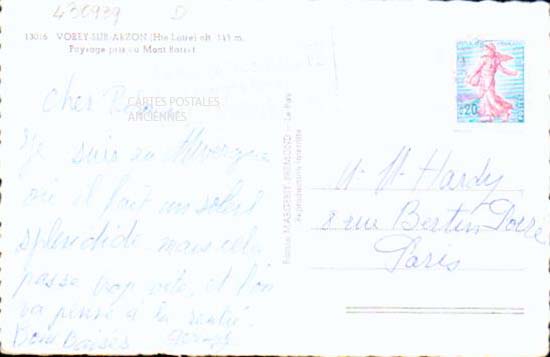 430939 D
13016 VOREY-SUR-ARZON (Hte Loire) alt. 545 m.
Paysage pris du Mont Barret
CARTES POSTALES
ANCIENNES
Cher
Je suis en Auvergne
où il fait un soleil
splendide mais cela
passe trop vite, et l'on
va penser à la rentrée.
Bons Baisers
MARGERIT-BREMOND - Le Puy
reproduction interdite
0,20
M. M. Hardy
8 rue Bertin Poirée
Paris